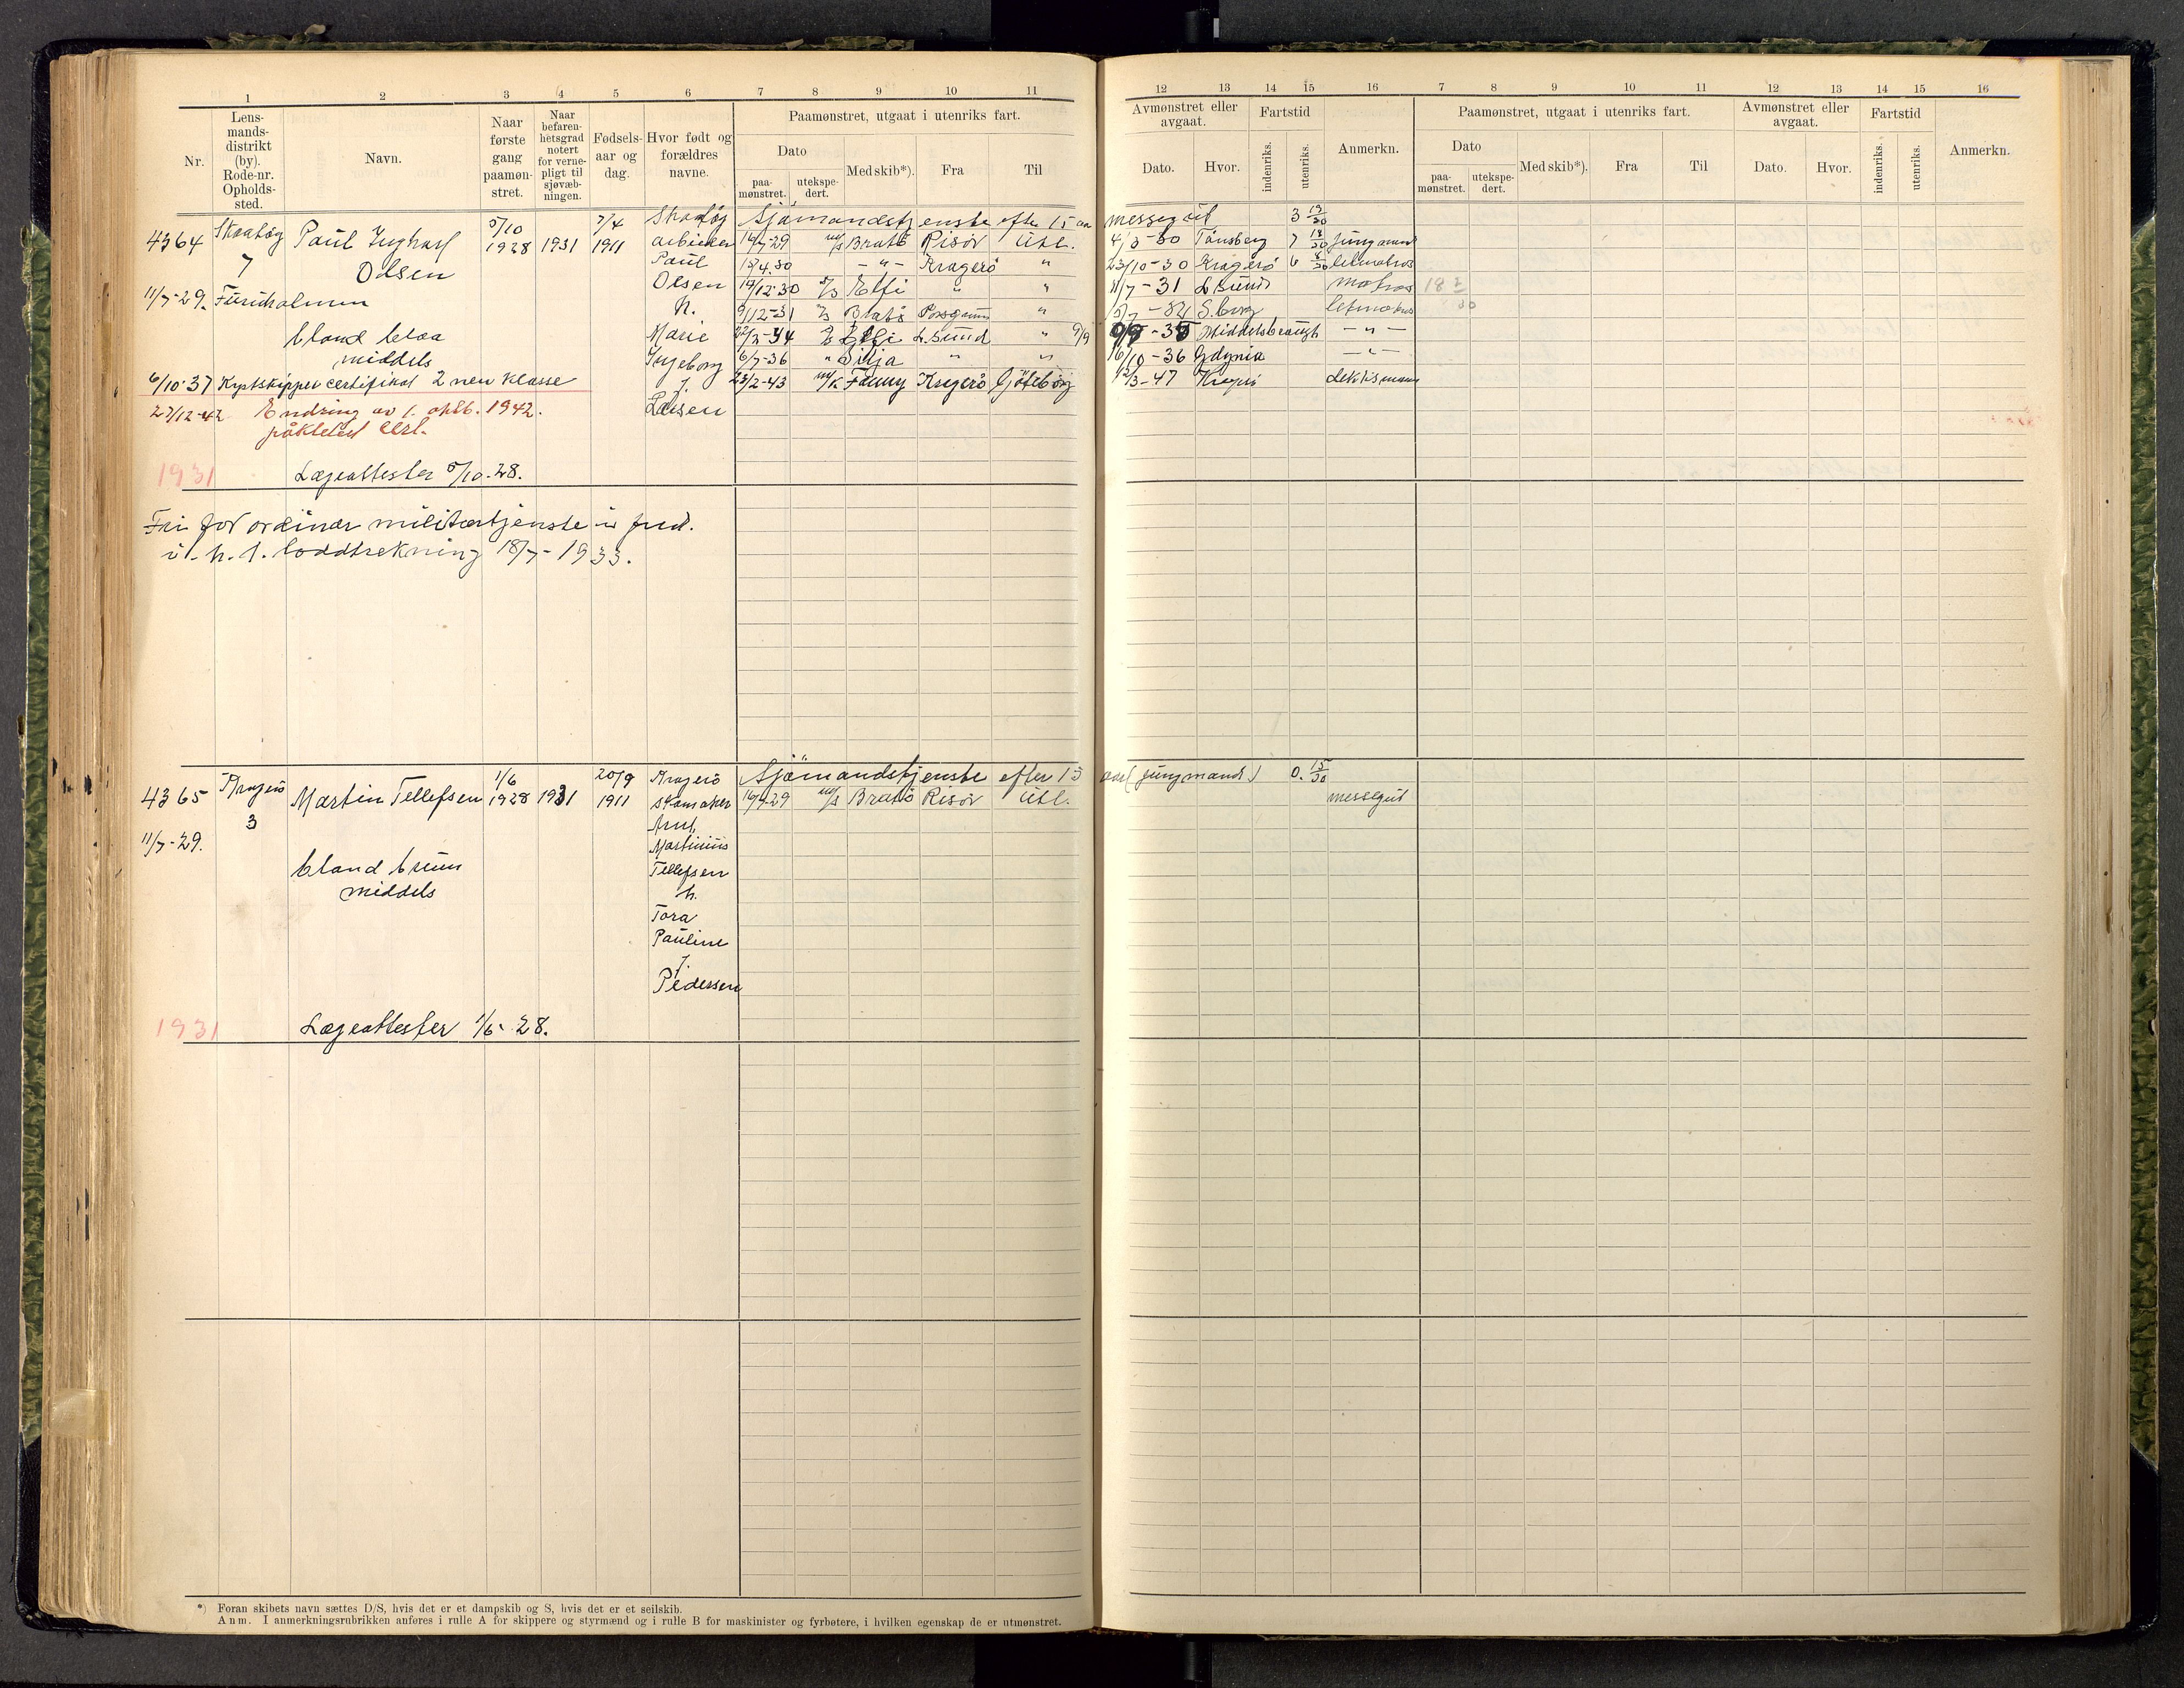 1 2 3 4 5 6 7 8 9 10 11
Nr.
Lens-
mands-
distrikt
(by).
Rode-nr.
Opholds-
sted.
Navn.
Naar
første
gang
paamøn-
stret.
Naar
befaren-
hetsgrad
notert
for verne-
pligt til
sjøvæb-
ningen.
Fødsels-
aar og
dag.
Hvor født og
forældres
navne.
Paamønstret, utgaat i utenriks fart.
Dato
paa-
mønstret.
utekspe-
dert.
Med skib*).
Fra
Til
12 13 14 15 16 7 8 9 10 11 12 13 14 15 16
Avmønstret eller
avgaat.
Dato.
Hvor.
Fartstid
indenriks.
utenriks.
Anmerkn.
Paamønstret, utgaat i utenriks fart.
Dato
paa-
mønstret.
utekspe-
dert.
Med skib*).
Fra
Til
Avmønstret eller
avgaat.
Dato.
Hvor.
Fartstid
indenriks.
utenriks.
Anmerkn.
4364
Skaatøy
7
Paul
Olsen
11/7-29. Furuholmen
bland blaa
middels
6/10-37 Kystskipper certifikat 2nen klasse
27/12-42 Endring av 1. 1942.
cert.
1931 Lægeattester 5/10-28.
5/10
1928 1931
7/4
1911
Skaatøy
arbeider
Paul
Olsen
h.
Marie
Ingeborg
f.
Larsen
Sjømandstjenste efter 15 aar messegut 3 19/30
16/7-29 m/s Brattø Risør Utl. 4/3-30 Tønsberg 7 18/30 jungmand
15/4.30 -"- Kragerø " 23/10-30 Kragerø 6 8/30 letmatros
19/12-30 D/S Elfi " " 11/7-31 L.sund matros
9/12-31 Porsgrunn " S.borg letmatros
22/3-34 Elfi L.sund " 9/9 -35 Middelsbrough -"-
6/7-36 " Silja " " 16/10-36 Gdynia -"-
23/2-43 m/k Fanny Kragerø Gøteborg 12/3-47 Kragerø
Fri for ordinær militærtjenste i fred.
i. h. t. loddtrekning 18/7-1933.
4365
Kragerø
3
11/7-29.
Martin Tellefsen
bland brun
middels
1/6
1928 1931
20/9
1911
Kragerø
skomaker
Martinius
Tellefsen
h.
Tora
Pauline
f.
Pedersen
Sjømandstjenste efter 15 aar (jungmand) 0. 15/30
16/7-29 m/s Brattø Risør Utl. messegut
1931 Lægeattester 1/6-28.
*) Foran skibets navn sættes D/S, hvis det er et dampskib og S, hvis det er et seilskib.
Anm. I anmerkningsrubrikken anføres i rulle A for skippere og styrmænd og i rulle B for maskinister og fyrbøtere, i hvilken egenskap de er utmønstret.